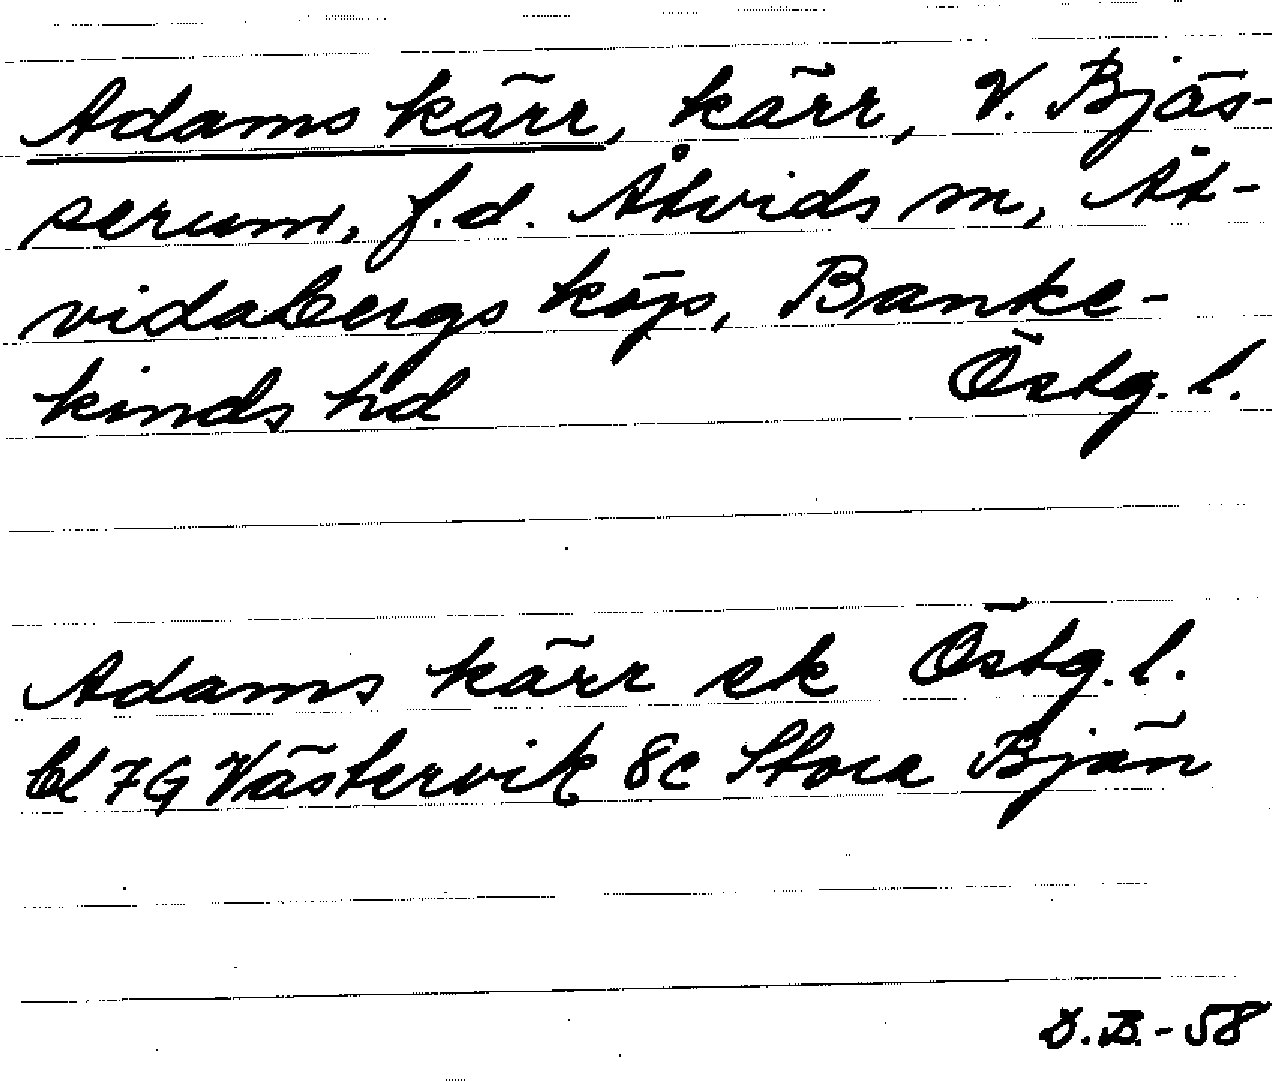 Adamskärr, kärr, V. Bjäs-
serum, f.d. Åtvids sn, Åt-
vidabergs köp, Banke-
kinds hd Östg. l.
Adamskärr ek Östg. l.
bl 7G Västervik 8c Stora Bjän
D.B.-58